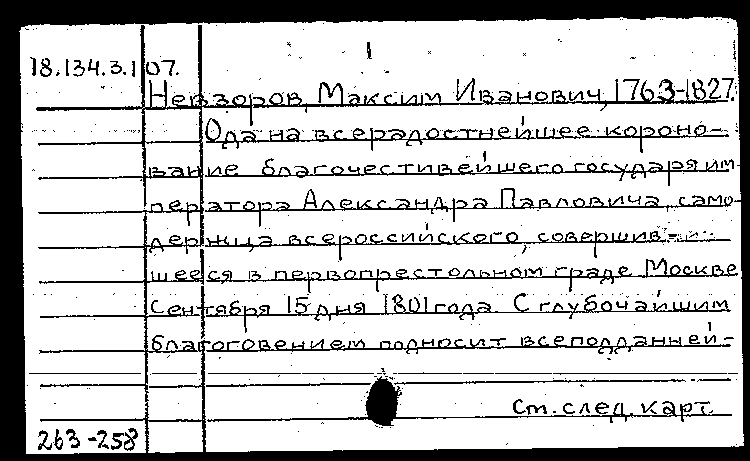 1
18.134.3.107.
Невзоров, Максим Иванович, 1763-1827.
Ода на всерадостнейшее короно-
вание благочестивейшего государя им-
ператора Александра Павловича, само-
держца всероссийского, совершив-
шееся в первопрестольном граде Москве
Сентября 15 дня 1801 года. С глубочайшим
благоговением подносит всеподданней-
См. след. карт.
263-258